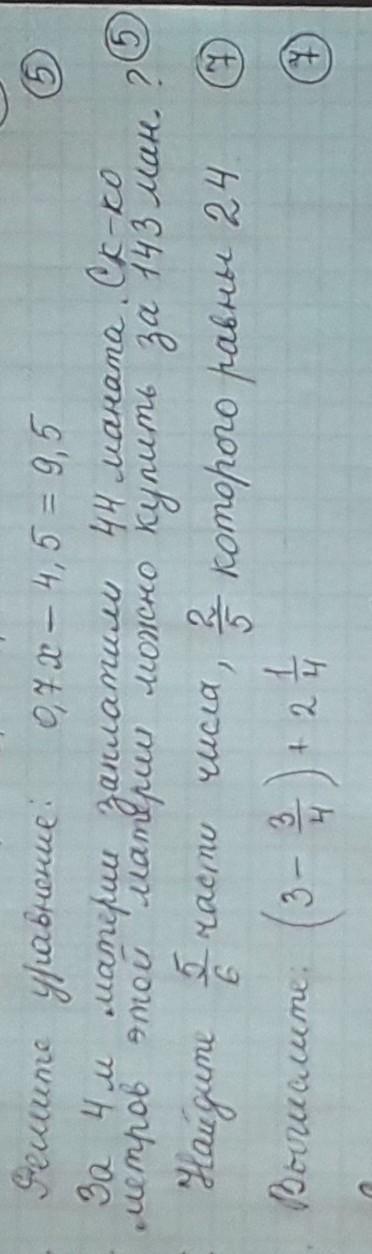 Решите уравнение: 0,7x − 4,5 = 9,5 (5)
За 4 м материи заплатили 44 маната. Ск-ко (5)
метров этой материи можно купить за 143 ман. ?
Найдите 5/6 части числа, 2/5 которого равны 24 (7)
Вычислите: (3 − 3/4) + 2 1/4 (7)